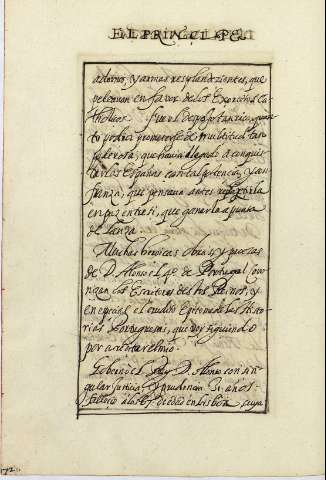 EL PRINCIPE
adornos, y armas resplandezientes, que
peleauan en fauor de los Exercitos Ca-
tholicos. fue el despojo tan rico, quan-
to podia prometerse de multitud tan
poderosa, que hauia llegado a conquis-
tar las Españas con tal potencia, y
que pensaua antes
en paz, entrar, que ganarla a punta
de lanza.
Muchas heroicas obras, y proezas
de D. Alonso el 4º de Portugal
los Escritores de los Reinos, y
en especial el erudito Epitome de las Histo-
rias Portuguesas, que voy siguiendo
por acertar el mio.
Gobernó el Rey D. Alonso con sin-
gular justicia, y prudencia 31 años.
fallecio a los 67 de edad en Lisboa, cuya
172